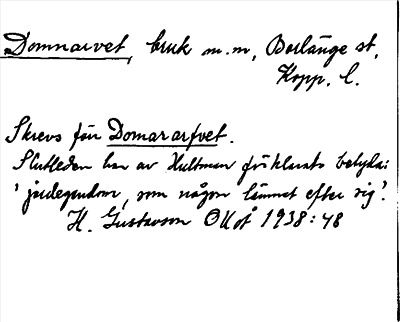 Domnarvet, bruk m.m, Borlänge st,
Kopp. l.
Skrevs för Domararfvet.
Slutleden har av Hultman förklarats betyda:
'jordegendom, som någon lämnat efter sig'.
H. Gustavson OUÅ 1938:48